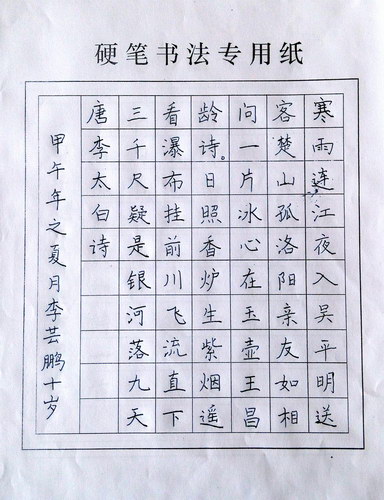 硬笔书法专用纸
寒雨连江夜入吴平明送
客楚山孤洛阳亲友如相
问一片冰心在玉壶王昌
龄诗。日照香炉生紫烟遥
看瀑布挂前川飞流直下
三千尺疑是银河落九天
唐李太白诗
甲午年之夏月李芸鹏十岁